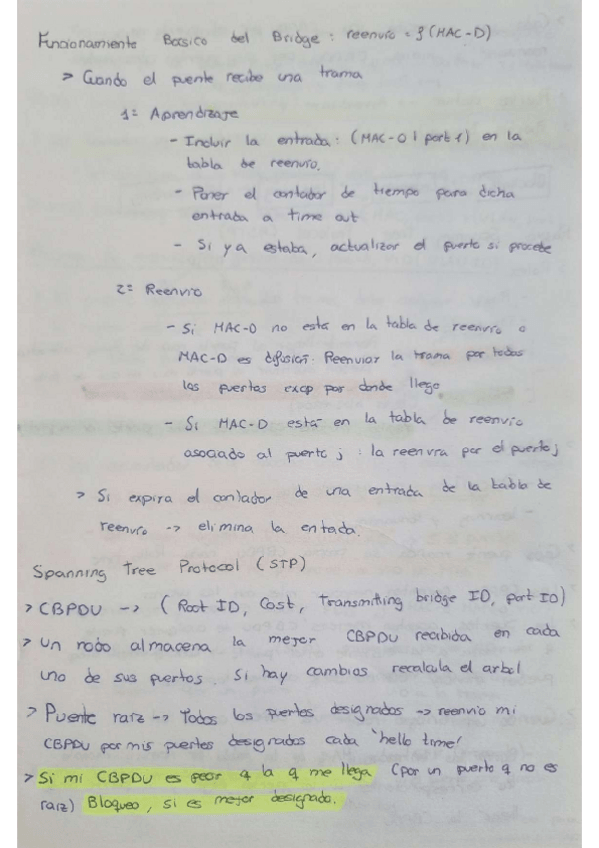 Funcionamiento Basico del Bridge : reenvío = f(MAC-D)
> Cuando el puente recibe una trama
1º Aprendizaje
- Incluir la entrada : (MAC-O | port 1) en la
tabla de reenvío.
- Poner el contador de tiempo para dicha
entrada a time out
- Si ya estaba, actualizar el puerto si procede
2º Reenvio
- Si MAC-D no está en la tabla de reenvío o
MAC-D es difusión. Reenviar la trama por todos
los puertos excp por donde llego
- Si MAC-D está en la tabla de reenvío
asociado al puerto j : la reenvia por el puerto j
> Si expira el contador de una entrada de la tabla de
reenvío -> elimina la entada.
Spanning Tree Protocol (STP)
> CBPDU -> (Root ID, Cost, Transmitting bridge ID, port ID)
> Un nodo almacena la mejor CBPDU recibida en cada
uno de sus puertos. Si hay cambios recalcula el arbol
> Puente raíz -> Todos los puertos designados -> reenvio mi
CBPDU por mis puertos designados cada 'hello time'
> Si mi CBPDU es peor q la q me llega (por un puerto q no es
raíz) Bloqueo, si es mejor designado.